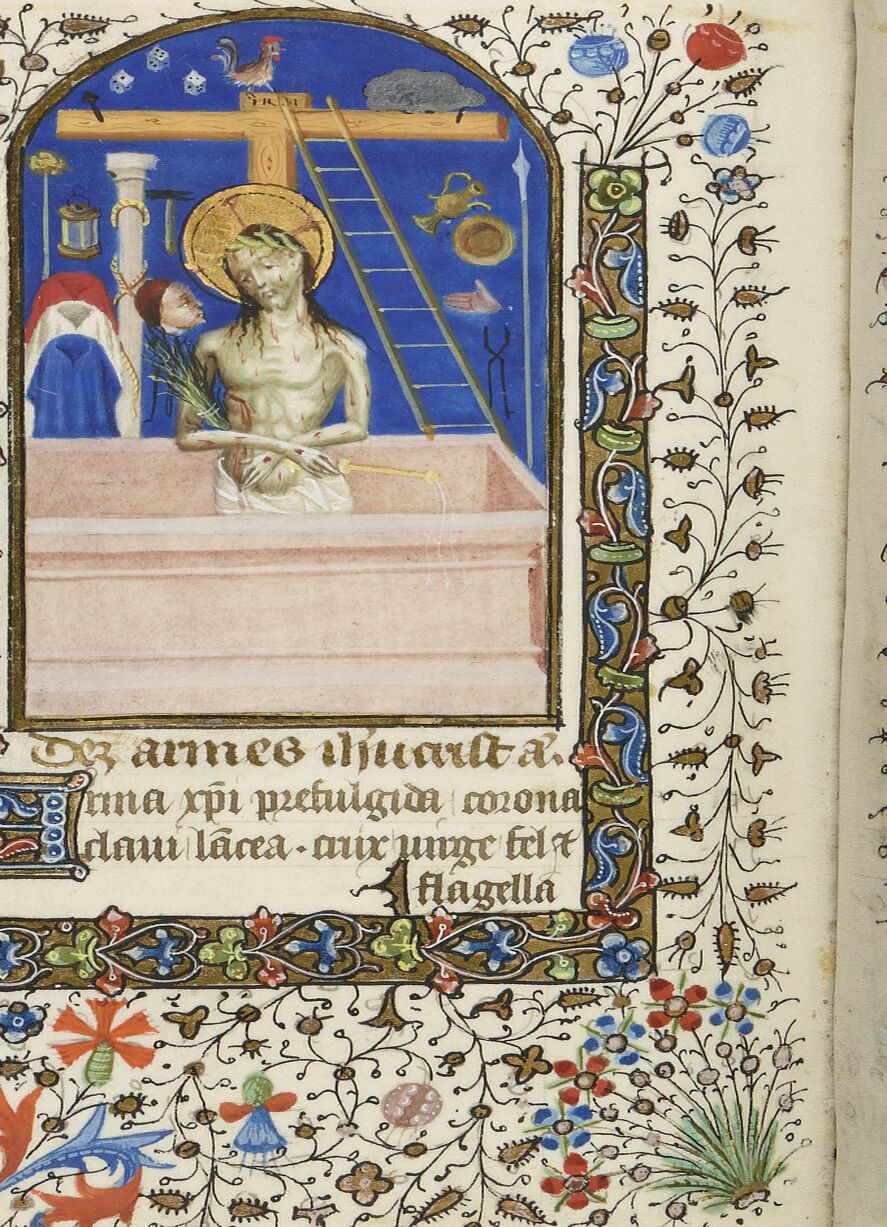 Des armes ihũcrist a͂.
Arma xp̃i prefulgida corona
claui lãcea · crux unge fel ⁊
flagella